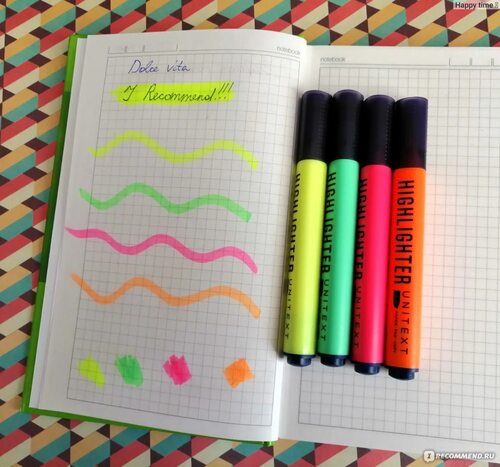 Happy time
notebook
notebook
Dolce vita
I Recommend!!!
HIGHLIGHTER UNITEXT
HIGHLIGHTER UNITEXT
HIGHLIGHTER UNITEXT
HIGHLIGHTER UNITEXT
IRECOMMEND.RU